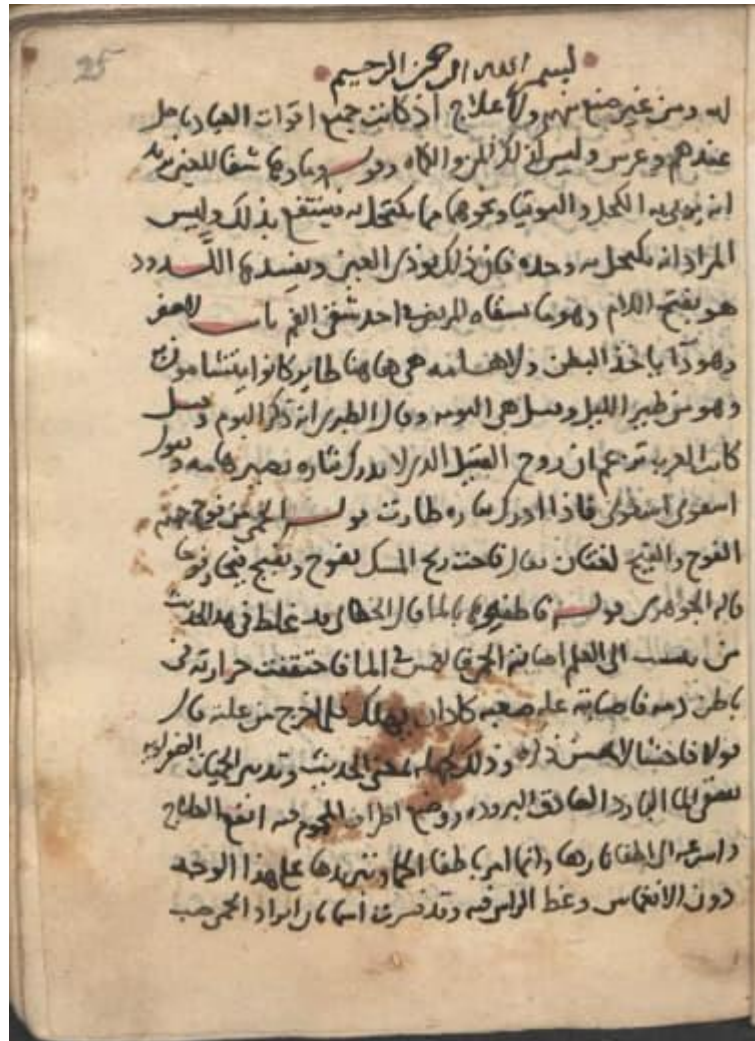 25
بسم الله الرحمن الرحيم
له ومن غير صنع منهم ولا علاج اذ كانت جميع اقوات العباد
عندهم وغرس وليس ان الكماه وقوله وماوها شفا للعين يريد
انه يربى به الكحل والتوتيا ونحوهما مما يكتحل به فينتفع بذلك وليس
المراد انه يكتحل به وحده فان ذلك يوذى العين ويفسدها اللدود
هو بفتح اللام وهو ما يسقاه المريض فى احد شقى الفم باب لا صفر
وهو دآ ياخذ البطن ولا هامه هى هاهنا طاير كانوا يتشامون به
وهو من طير الليل وقيل هى البومه وقال الطبرى انه ذكر البوم وقيل
كانت العرب تزعم ان روح القتيل الذى لا يدرك بثاره تصير هامه وتقول
اسقونى اسقونى فاذا ادرك بثاره طارت قوله الحمى من فوح جهنم
الفوح والفيح لغتان يقال فاحت ريح المسك تفوح وتفيح فيحا وفوحا
قاله الجوهرى قوله فاطفوها بالما قال الخطابى قد غلط فى هذا الحديث
من ينسب الى العلم اصابته الحمى فانغمس فى الما فاحتقنت حرارته فى
باطن بدنه فاصابته عله صعبه كاد ان يهلك فلما خرج من علته قال
قولا فاحشا لا يحسن ذكره وذلك لجهله بمعنى الحديث وتبريد الحميات الصفراويه
بسقى الما البارد الصادق البروده ووضع اطراف المحموم فيه انفع العلاج
واسرعه الى اطفا نارها وانما امر باطفا الحما وتبريدها على هذا الوجه
دون الانغماس وغط الراس فيه وقد فسرت اسما ابراد الحمى صب